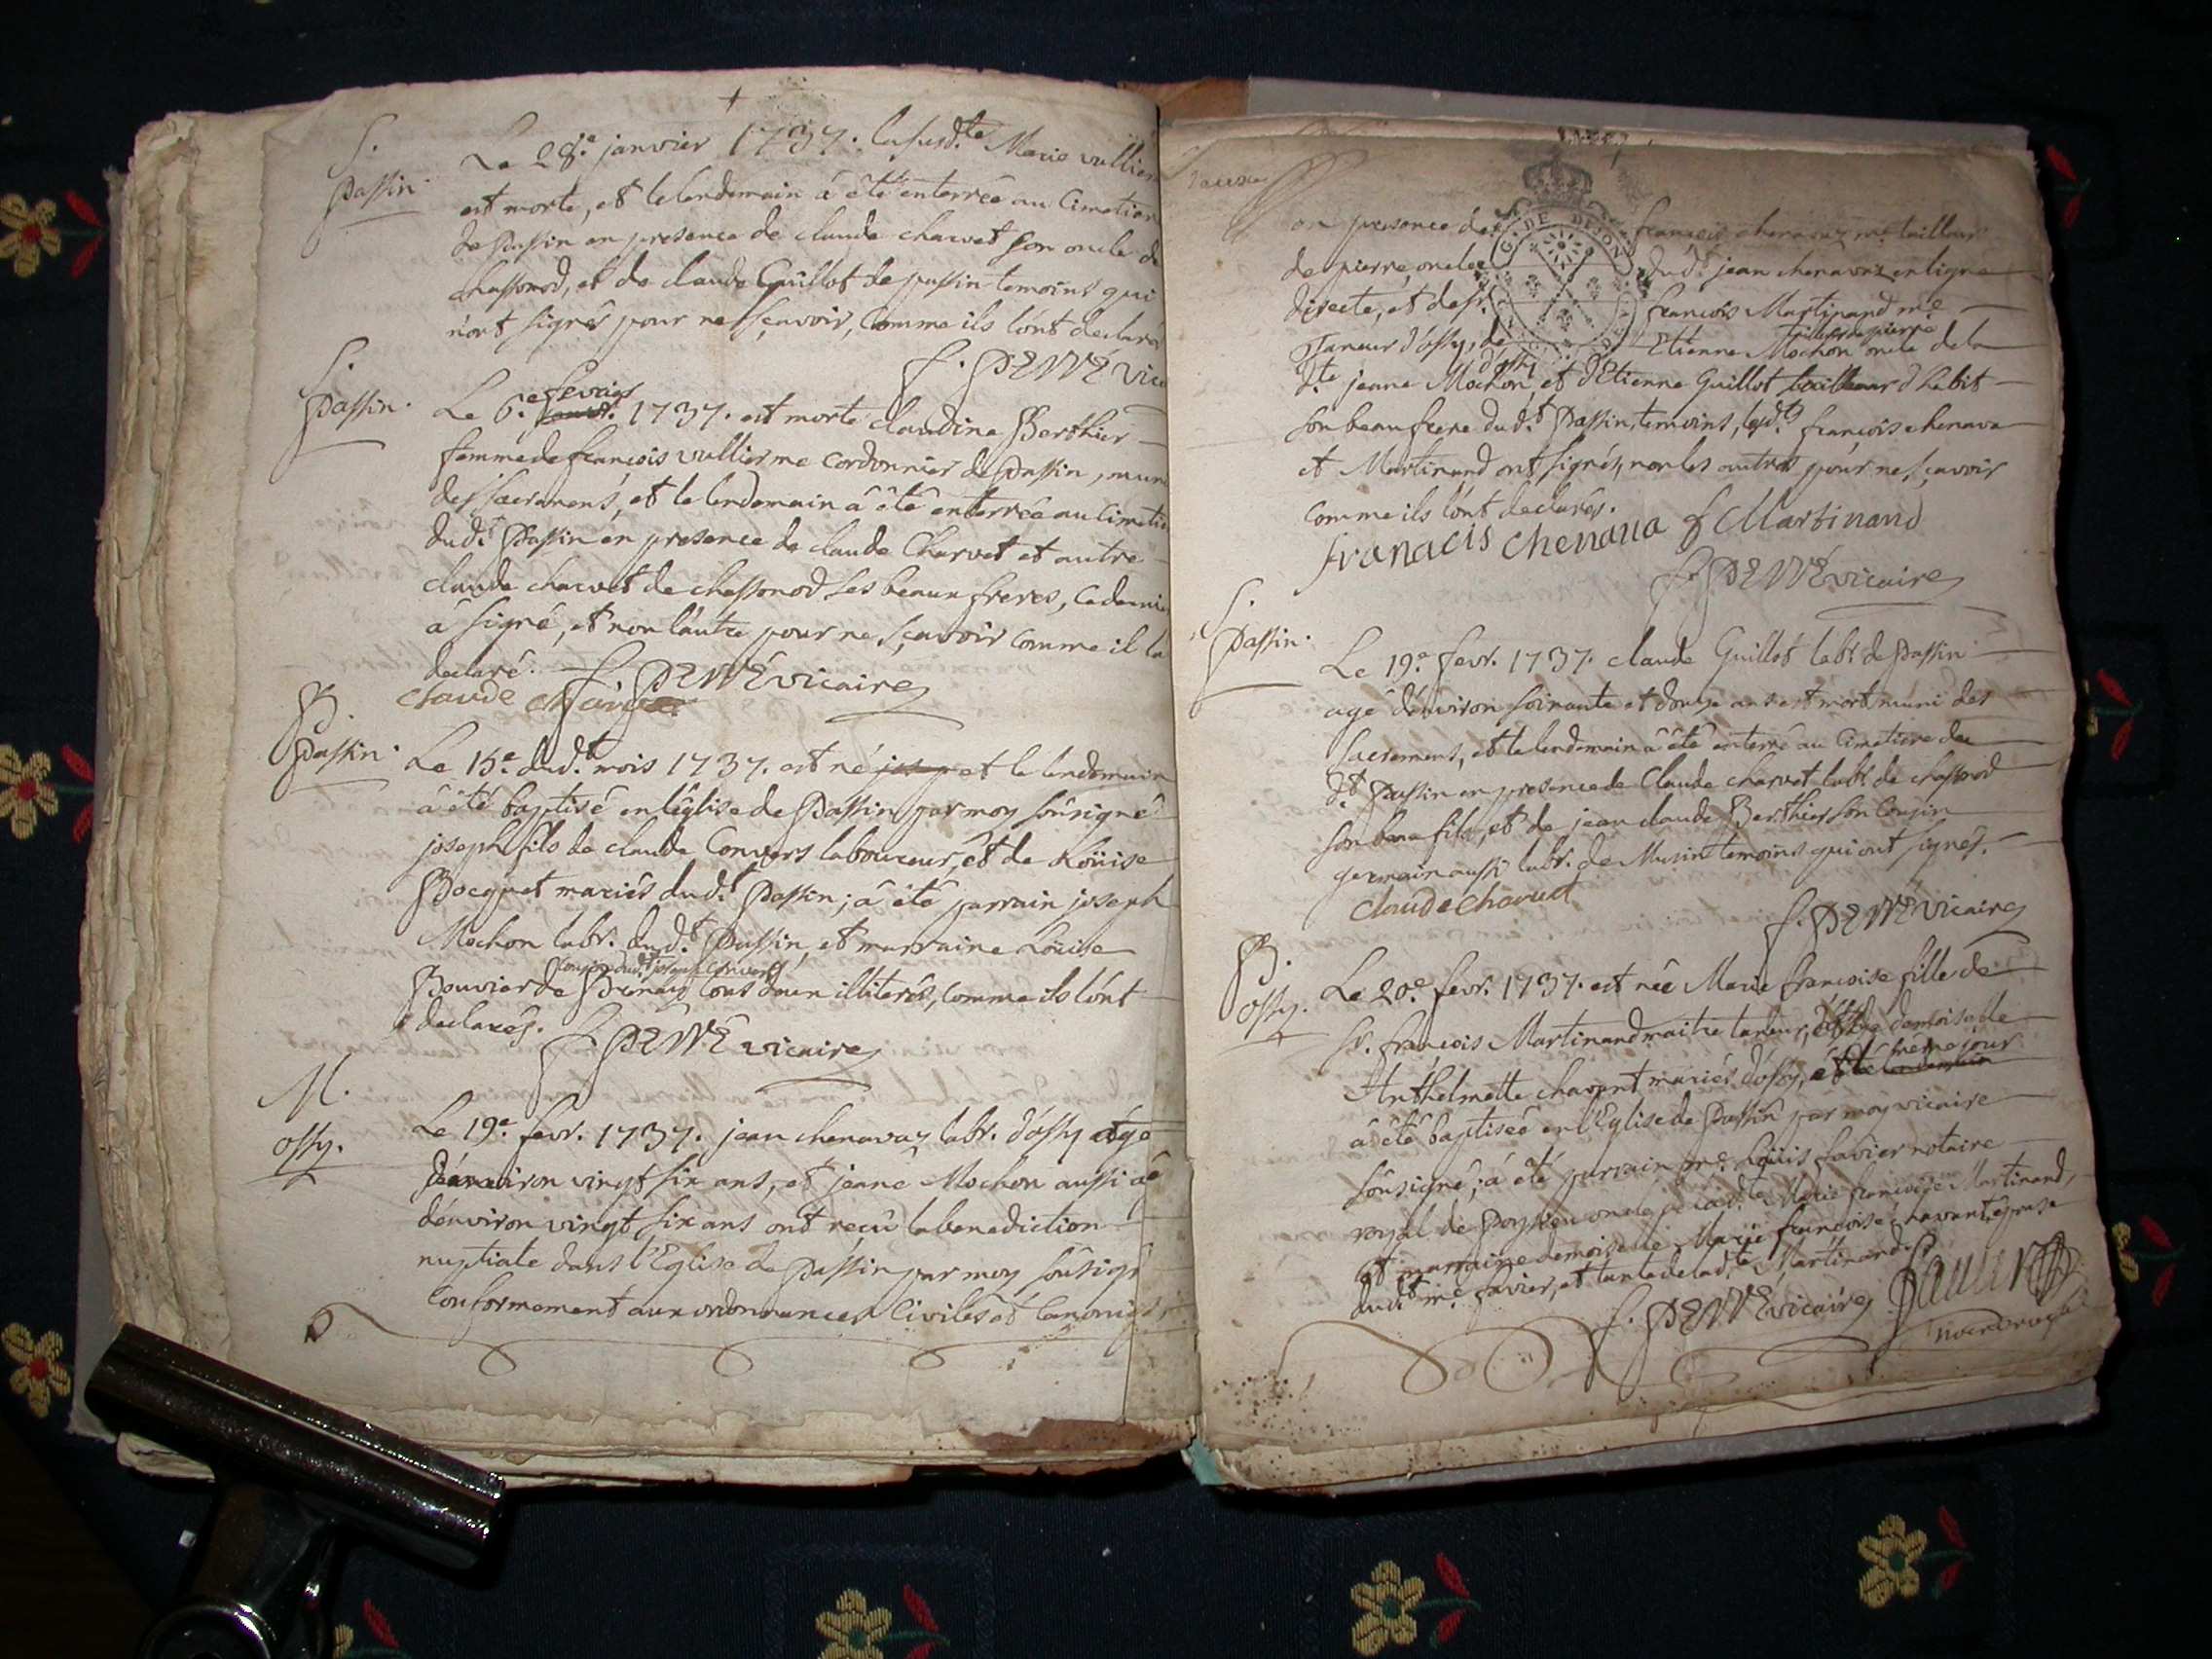 S.
Passin.
Le 28.e janvier 1737. la susd.te Marie vullier
est morte, et le lendemain â êtê enterrée au Cimetier
de Passin en presence de claude charvet son oncle de
chassonod, et de claude Guillot de passin temoins qui
n'ont signés pour ne sçavoir, comme ils l'ônt declarés
f. PEWÉ vic
S.
Passin.
Le 6.e fevrier 1737. est morte claudine Berthier
femme de francois vullierme cordonnier de Passin, muni
des sacrements, et le lendemain â êtê enterrée au Cimetie
dud.t Passin en presence de claude Charvet et autre
claude charvet de chassonod ses beaux freres, ce dernier
â signé, et non l'autre pour ne sçavoir comme il la
declaré. f. PEWÉ vicaire
claude charvet
B.
Passin.
Le 15.e dud.t mois 1737. est né et le lendemain
â êté baptisé en l'êglise de Passin par moy soûsigné
joseph fils de claude Convers laboureur, et de Loüise
Bocquet mariés dud.t Passin; â êté parrain joseph
Mochon labr. dud.t Passin, et marraine Loüise
cousine dud.t joseph convers
Bouvier de Brenaz tous deux illiterés, comme ils l'ônt
declarés. f. PEWÉ vicaire
M.
ossy.
Le 19.e fevr. 1737. jean chenavaz labr. d'ossy âgé
d'environ vingt six ans, et jeane Mochon aussi âgé
d'environ vingt six ans ont reçû la benediction
nuptiale dans l'Eglise de Passin par moy soûsigné
conformement aux ordonnances Civiles et canoniq
en presence de francois chenavaz me. tailleur
G. DE DIJON
de pierre, oncle dud.t jean chenavaz en ligne
directe, et de sr. francois Martinand me.
Taneur d'ossy, de Etienne Mochon oncle de la
tailleur de pierre
d'ossy
d.te jeane Mochon, et d'Etienne Guillot tailleur d'habit
son beau frere dud.t Passin, temoins, lesd.ts françois chenava
et Martinand ont signés, non les autres pour ne sçavoir
comme ils l'ônt declarés.
franacis chenaua f Martinand
f. PEWÉ vicaire
S.
Passin.
Le 19.e fevr. 1737. claude Guillot labr. de Passin
agé d'environ soixante et douze ans est mort muni des
sacrements, et le lendemain â êtê enterré au Cimetiere du
d.t Passin en presence de Claude charvet labr. de chassonod
son beau fils, et de jean claude Berthier son Cousin
germain aussi labr. de Musin temoins qui ont signés.
claude charuet
f. PEWÉ vicaire
B.
ossy.
Le 20.e fevr. 1737. est née Marie françoise fille de
sr. francois Martinand maitre taneur, et de demoiselle
Anthelmette chavent mariés d'ossy, et le même jour
â êtê baptisée en l'Eglise de Passin par moy vicaire
soûsigné; â êté parrain me. Loüis favier notaire
royal de Poysieu oncle de lad.te Marie françoise Martinand,
et marraine demoiselle Marie françoise chavent, epouse
dud.t me. favier, et tante de lad.te Martinand.
f. PEWÉ vicaire fauier